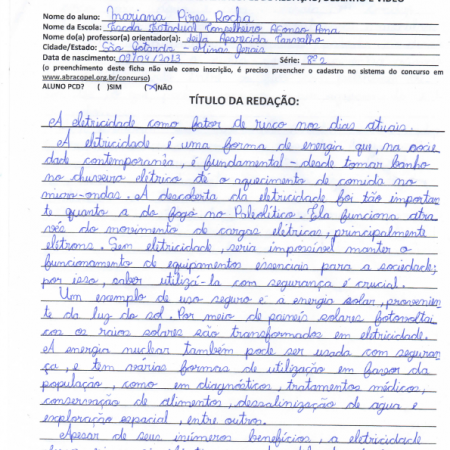 Nome do aluno: Mariana Pires Rocha
Nome da Escola: Escola Estadual Conselheiro Afonso Pena
Nome do(a) professor(a) orientador(a): Leila Aparecida Carvalho
Cidade/Estado: São Gotardo - Minas Gerais
Data de nascimento: 09/04/2013 Série: 8º 2
(o preenchimento deste ficha não vale como inscrição, é preciso preencher o cadastro no sistema do concurso em
www.abracopel.org.br/concurso)
ALUNO PCD? ( )SIM (X)NÃO
TÍTULO DA REDAÇÃO:
A eletricidade como fator de risco nos dias atuais.
A eletricidade é uma forma de energia que, na socie
dade contemporanêa, é fundamental - desde tomar banho
no chuveiro elétrico até o aquecimento de comida no
micro-ondas. A descoberta da eletricidade foi tão importan
te quanto a do fogo no Paleolítico. Ela funciona atra
vés do movimento de cargas elétricas, principalmente
elétrons. Sem eletricidade, seria impossível manter o
funcionamento de equipamentos essenciais para a sociedade;
por isso, saber utilizá-la com segurança é crucial.
Um exemplo de uso seguro é a energia solar, provenien
te da luz do sol. Por meio de paineís solares fotovoltai
cos os raios solares são transformados em eletricidade.
A energia nuclear também pode ser usada com seguran
ça, e tem várias formas de utilização em favor da
população, como em diagnósticos, tratamentos médicos,
conservação de alimentos, dessalinização de água e
exploração espacial, entre outros.
Apesar de seus inúmeros benefícios, a eletricidade